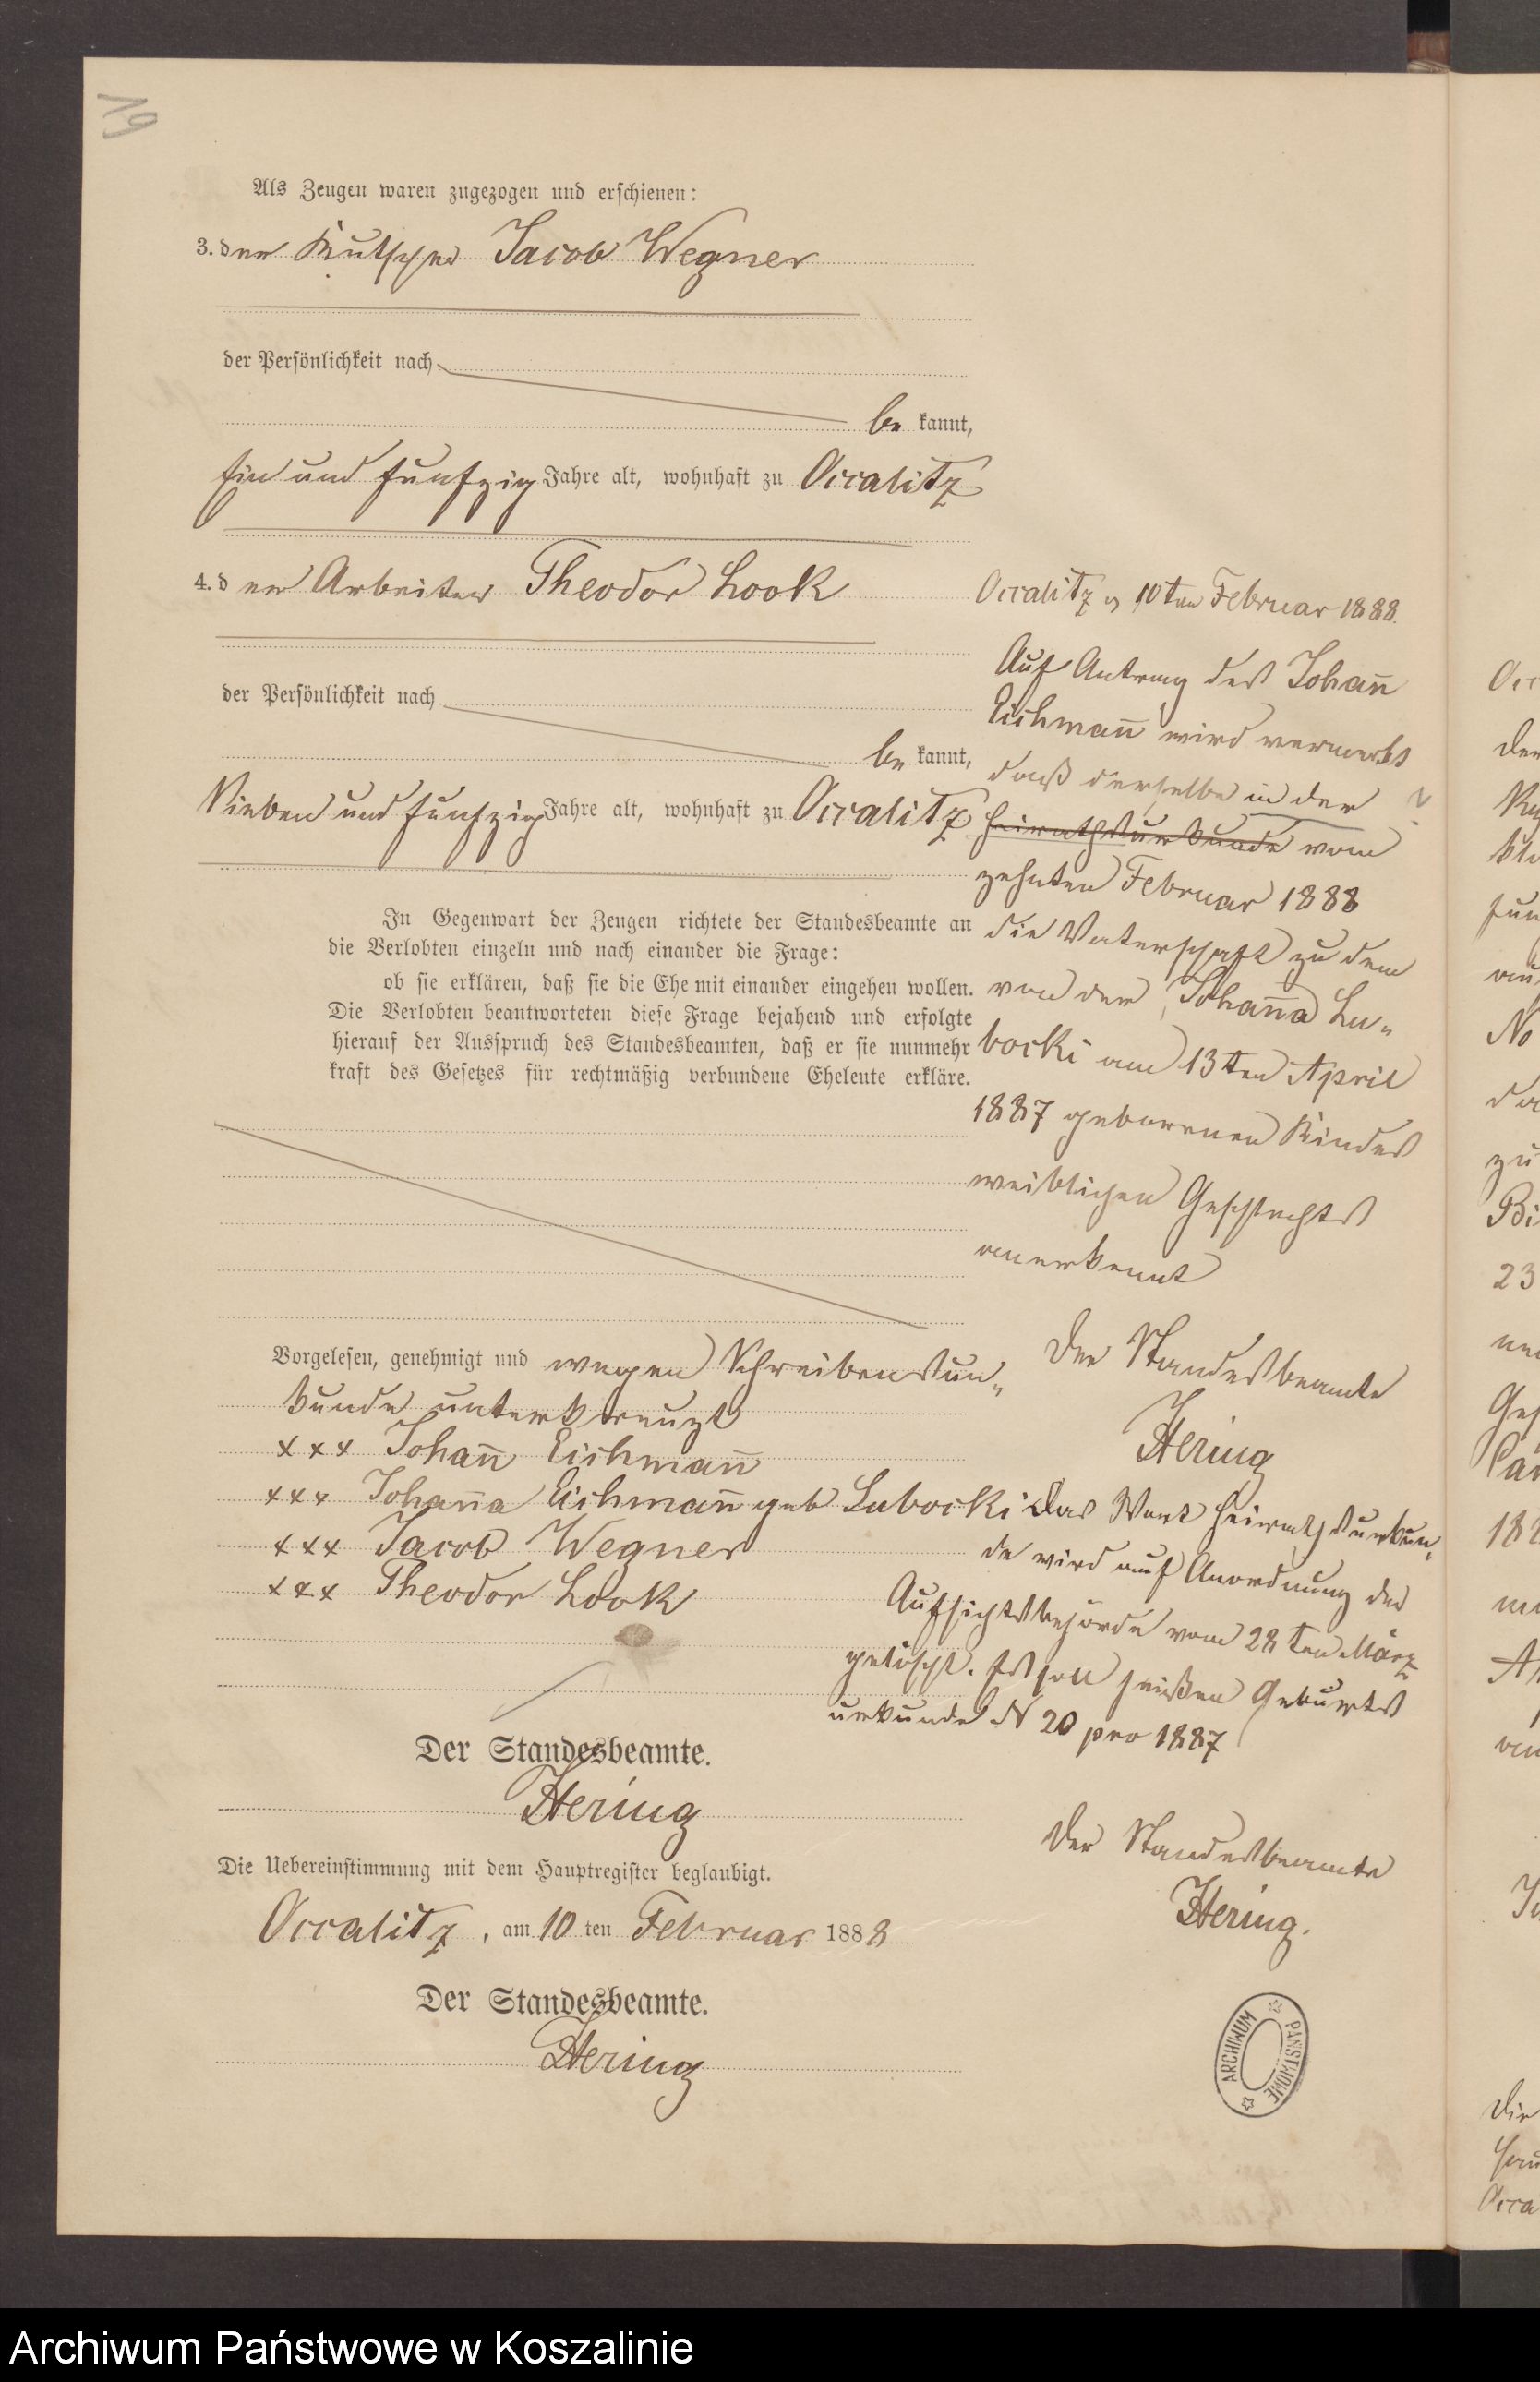 19
Als Zeugen waren zugezogen und erschienen:
3. der Kutscher Jacob Wegner
der Persönlichkeit nach
be kannt,
Ein und funfzig Jahre alt, wohnhaft zu Occalitz
4. d er Arbeiter Theodor Look
der Persönlichkeit nach
be kannt,
Sieben und funfzig Jahre alt, wohnhaft zu Occalitz
In Gegenwart der Zeugen richtete der Standesbeamte an
die Verlobten einzeln und nach einander die Frage:
ob sie erklären, daß sie die Ehe mit einander eingehen wollen.
Die Verlobten beantworteten diese Frage bejahend und erfolgte
hierauf der Ausspruch des Standesbeamten, daß er sie nunmehr
kraft des Gesetzes für rechtmäßig verbundene Eheleute erkläre.
Vorgelesen, genehmigt und wegen Schreibensun-
kunde unterkreuzt
xxx Johan̄ Eichman̄
xxx Johan̄a Eichman̄ geb Lubocki
xxx Jacob Wegner
xxx Theodor Look
Der Standesbeamte.
Hering
Die Uebereinstimmung mit dem Hauptregister beglaubigt.
Occalitz, am 10 ten Februar 1888
Der Standesbeamte.
Hering
Occalitz 10ten Februar 1888.
Auf Antrag des Johan̄
Eichman̄ wird vermerkt
daß derselbe in der
Heirathsurkunde vom
zehnten Februar 1888
die Vaterschaft zu dem
von der Johan̄a Lu-
bocki am 13ten April
1887 geborenen Kindes
weiblichen Geschlechts
anerkennt
Der Standesbeamte
Hering
Das Wort Heirathsurkun-
de wird auf Anordnung der
Aufsichtsbehörde vom 28ten März
gelöscht. Es soll heißen Geburts
urkunde N 20 pro 1887
Der Standesbeamte
Hering.
ARCHIWUM PAŃSTWOWE
Archiwum Państwowe w Koszalinie